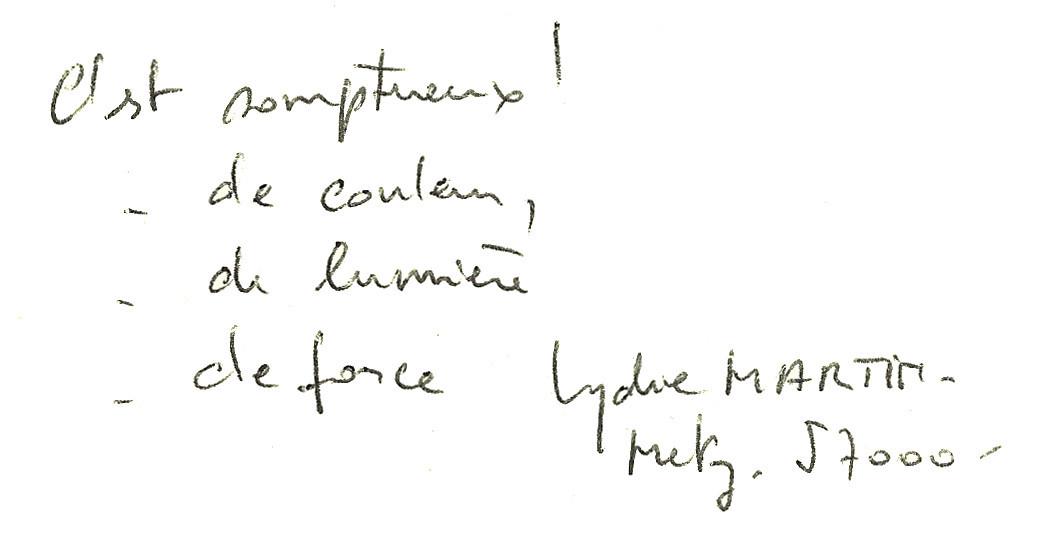 C'est somptueux !
- de couleur,
- de lumière
- de force
Lydie MARTIN -
Metz. 57000 -